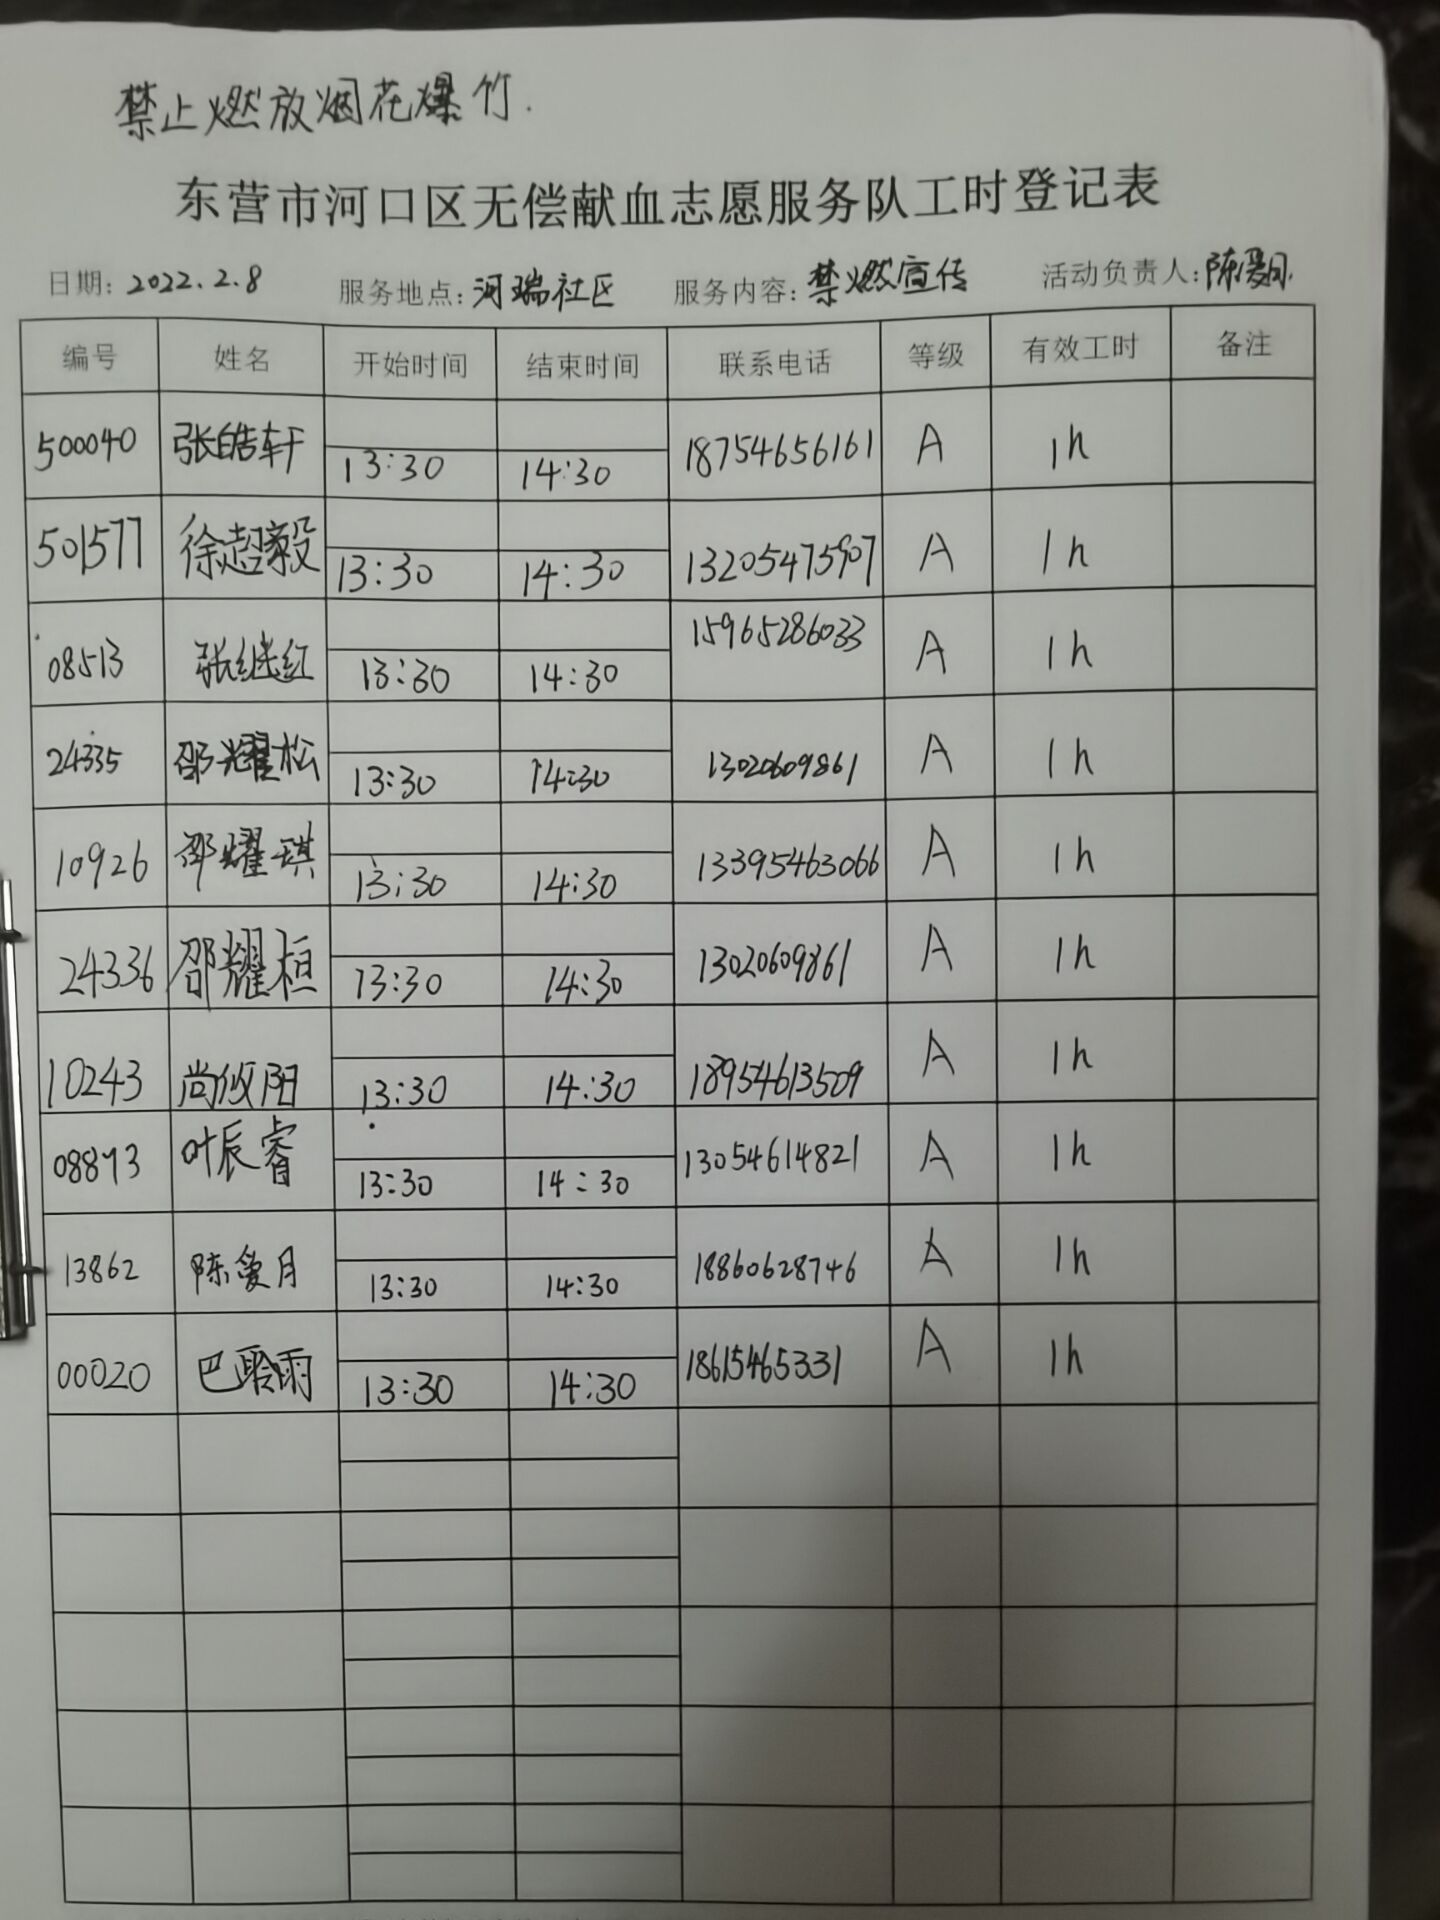 禁止燃放烟花爆竹.
东营市河口区无偿献血志愿服务队工时登记表
日期: 2022.2.8 服务地点: 河瑞社区 服务内容: 禁燃宣传 活动负责人: 陈爱月.
编号 姓名 开始时间 结束时间 联系电话 等级 有效工时 备注
500040 张皓轩 13:30 14:30 18754656161 A 1h
501577 徐超毅 13:30 14:30 13205475907 A 1h
08513 张继红 13:30 14:30 15965286033 A 1h
24335 邵耀松 13:30 14:30 13020609861 A 1h
10926 邵耀琪 13:30 14:30 13395463066 A 1h
24336 邵耀桓 13:30 14:30 13020609861 A 1h
10243 尚攸阳 13:30 14:30 18954613509 A 1h
08893 叶辰睿 13:30 14:30 13054614821 A 1h
13862 陈爱月 13:30 14:30 18860628746 A 1h
00020 巴聆雨 13:30 14:30 18615465331 A 1h